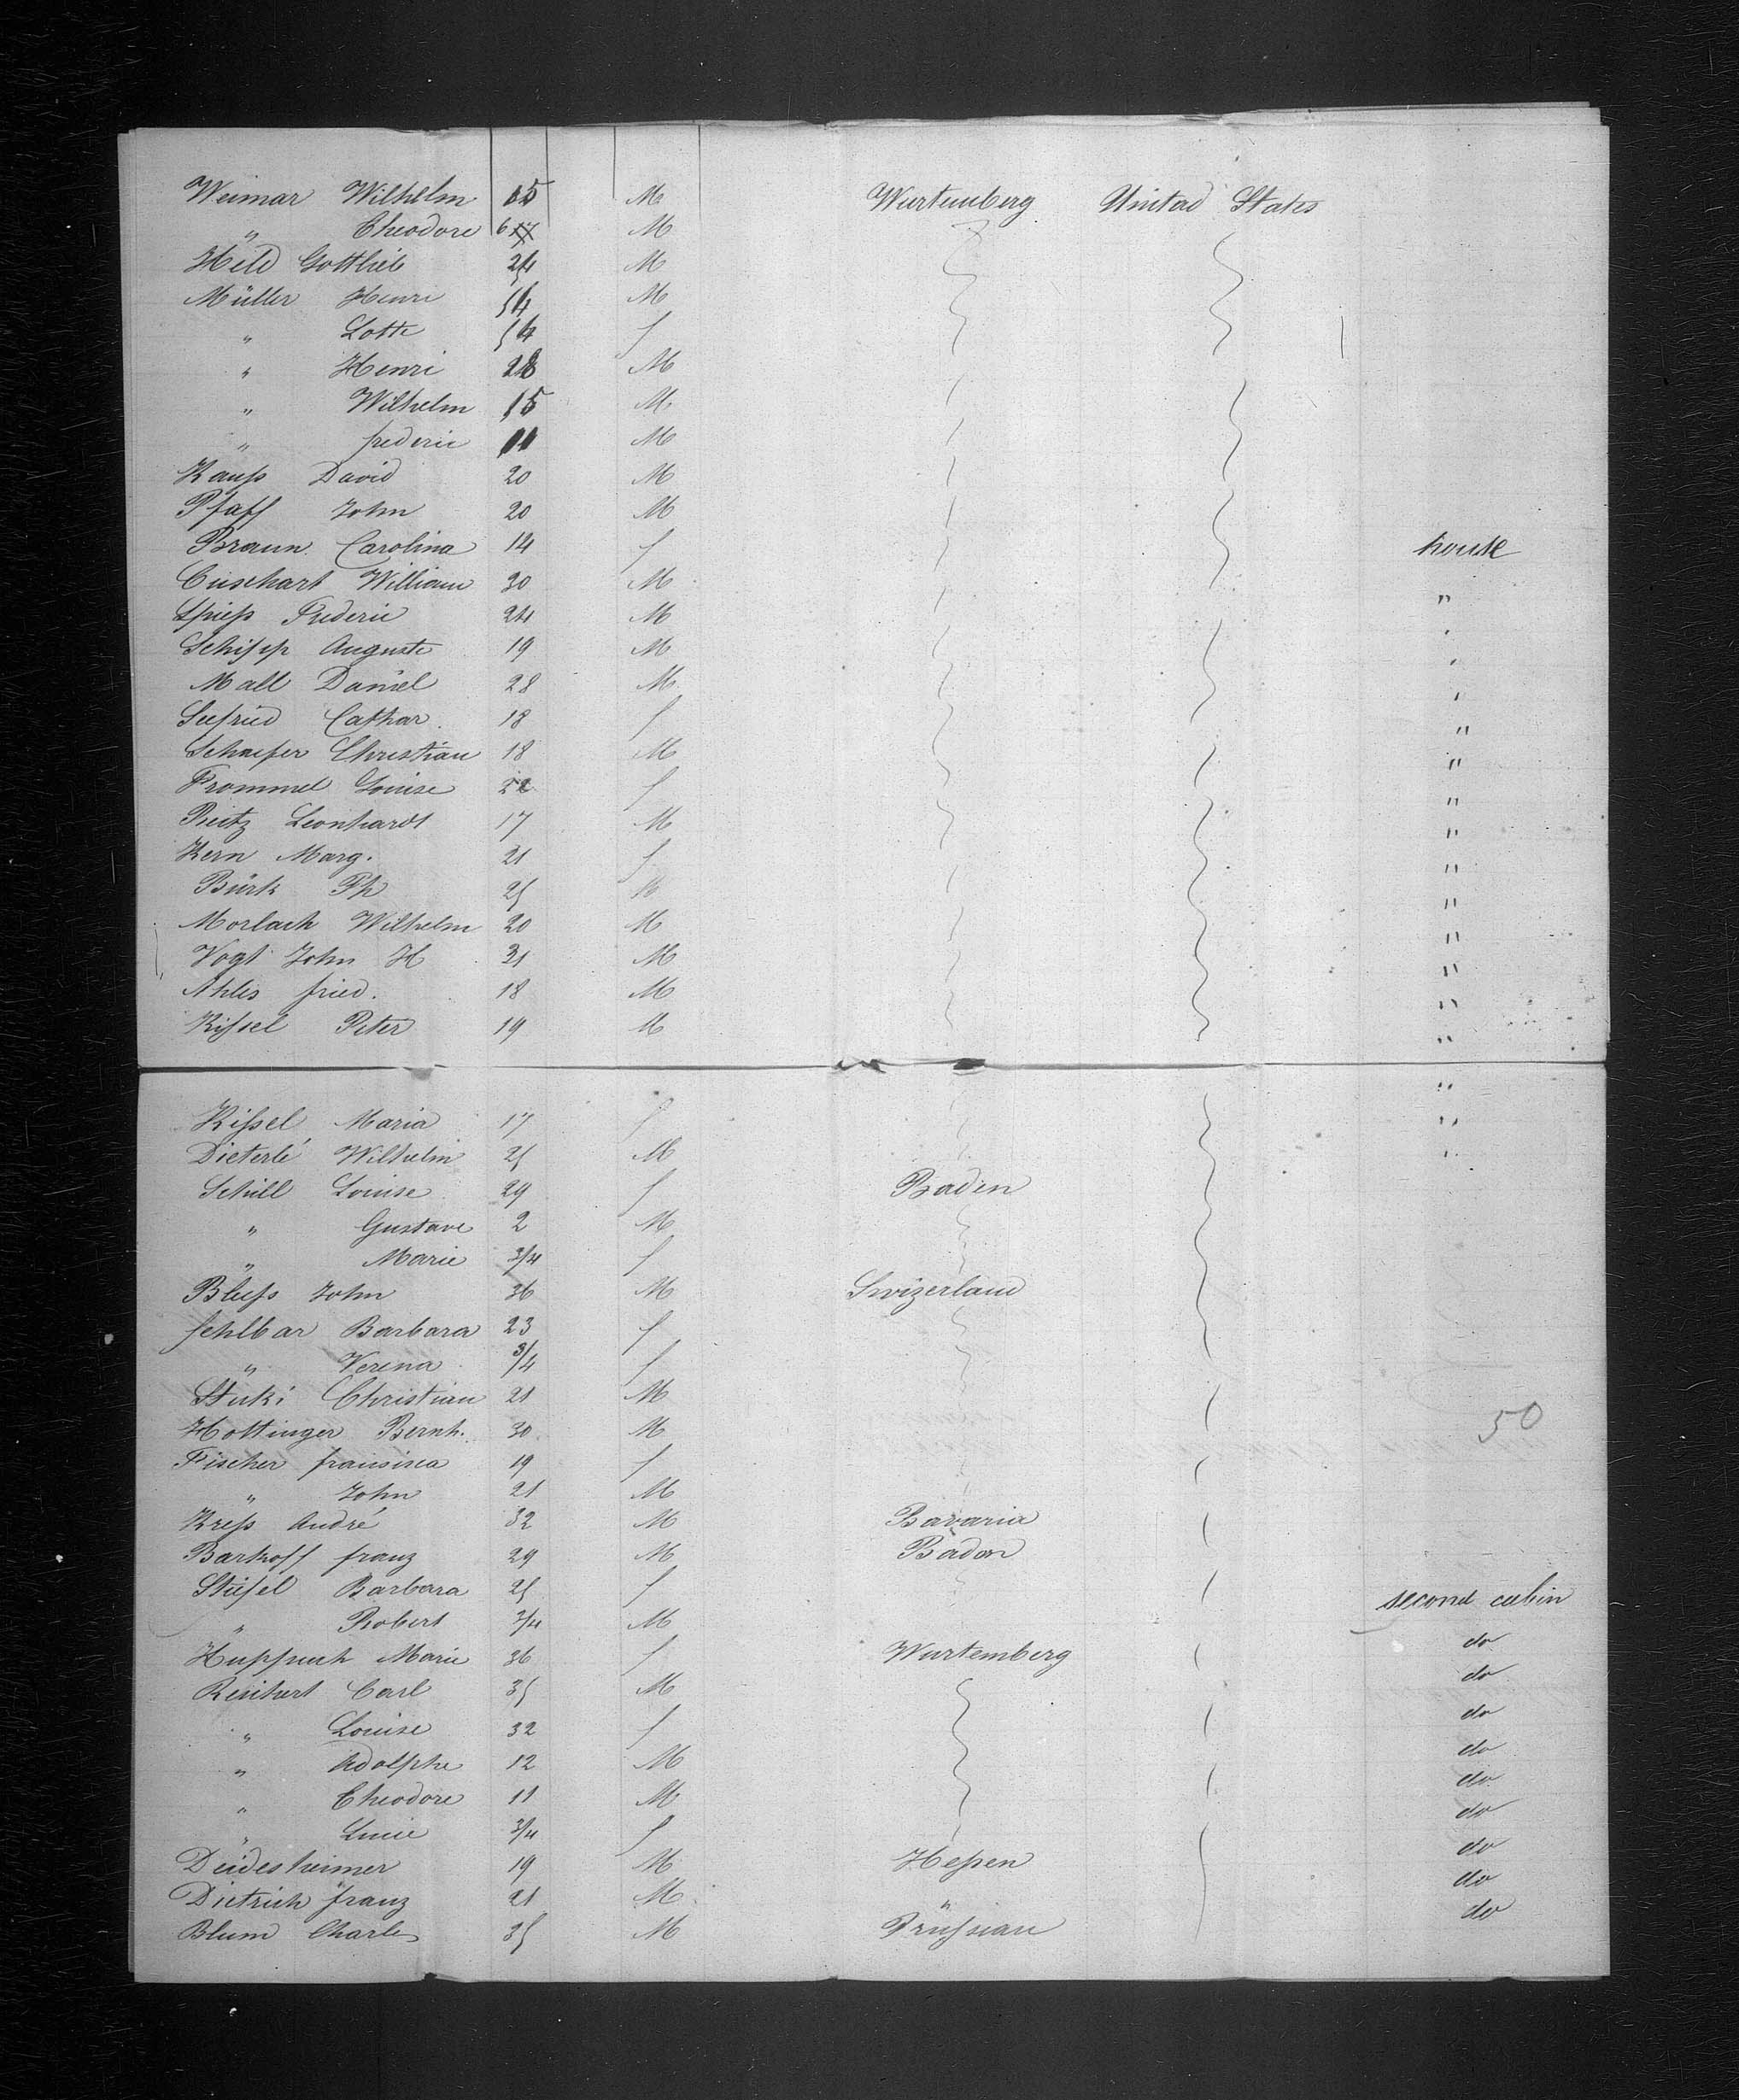 Weimar Wilhelm 15 M Wurtemberg Unitad States
" Theodore 6 M
Held Gottlieb 24 M
Müller Henri 54 M
" Lotte 54 f
" Henri 28 M
" Wilhelm 15 M
" frederic 11 M
Kauſs David 20 M
Pfaff John 20 M
Braun Carolina 14 f house
William 30 M "
Spieſs Frederic 24 M "
Schipp Auguste 19 M "
Mall Daniel 28 M "
Seefried Cathar. 18 f "
Schaefer Christian 18 M "
Frommel Louise 22 f "
Pietz Leonhardt 17 M "
Kern Marg. 21 f "
Bürk Ph 25 M "
Morlach Wilhelm 20 M "
Vogt John H 31 M "
Ahles fried. 18 M "
Kiſsel Peter 19 M "
Kiſsel Maria 17 f "
Dieterlé Wilhelm 25 M "
Schill Louise 29 f Baden
" Gustave 2 M
" Marie 3/4 f
Bleſs John 36 M Swizerland
fehlbar Barbara 23 f
" Verena 3/4 f
Stuki Christian 21 M
Hottinger Bernh. 30 M 50
Fischer 19 f
" John 21 M
Kreſs André 32 M Bavaria
Barkoff franz 29 M Badon
Barbara 25 f second cabin
" Robert 3/4 M do
Marie 36 f Wurtemberg do
Reichert Carl 35 M do
" Louise 32 f do
" Adolphe 12 M do
" Theodore 11 M do
" 3/4 f do
Deidesheimer 19 M Heſsen do
Dietrich franz 21 M " do
Blum Charles 35 M Prüſsian